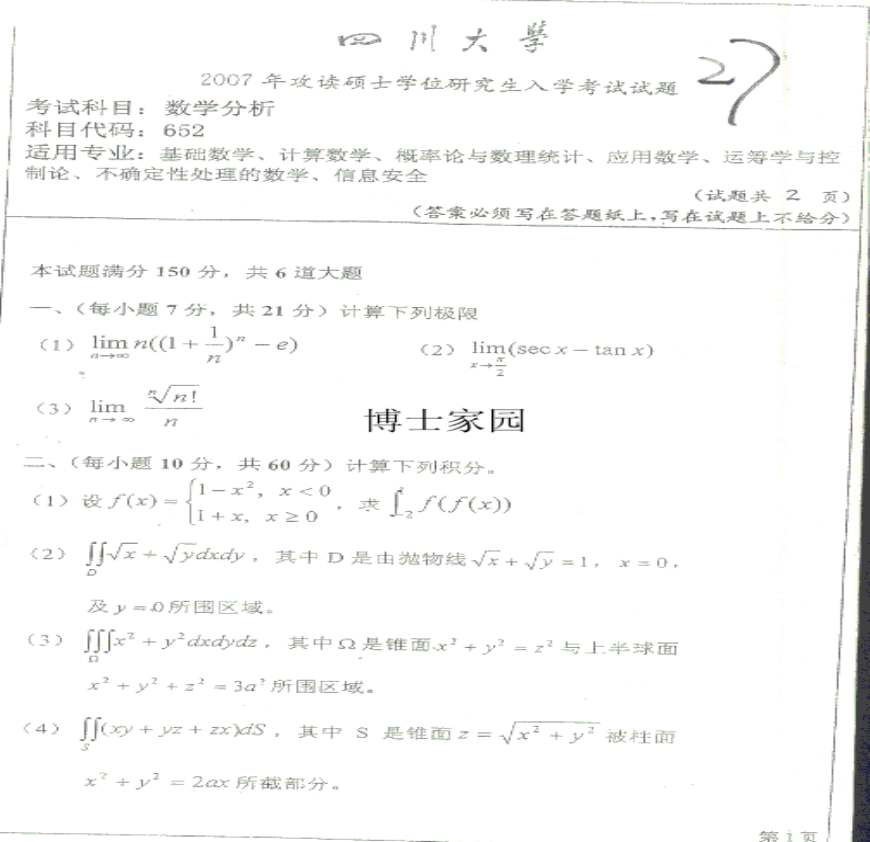 四川大學
27
2007 年攻读硕士学位研究生入学考试试题
考试科目：数学分析
科目代码：652
适用专业：基础数学、计算数学、概率论与数理统计、应用数学、运筹学与控
制论、不确定性处理的数学、信息安全
（试题共 2 页）
（答案必须写在答题纸上，写在试题上不给分）
本试题满分 150 分，共 6 道大题
一、（每小题 7 分，共 21 分）计算下列极限
（1） lim_{n→∞} n((1+1/n)^n − e) （2） lim_{x→π/2} (sec x − tan x)
（3） lim_{n→∞} ⁿ√n! / n
博士家园
二、（每小题 10 分，共 60 分）计算下列积分。
（1）设 f(x) = { 1−x², x<0 ; 1+x, x≥0 ，求 ∫_{-2} f(f(x))
（2） ∬_D √x + √y dxdy ，其中 D 是由抛物线 √x + √y = 1， x = 0，
及 y = 0 所围区域。
（3） ∭_Ω x² + y² dxdydz ，其中 Ω 是锥面 x² + y² = z² 与上半球面
x² + y² + z² = 3a² 所围区域。
（4） ∬_S (xy + yz + zx)dS ，其中 S 是锥面 z = √(x² + y²) 被柱面
x² + y² = 2ax 所截部分。
第 1 页